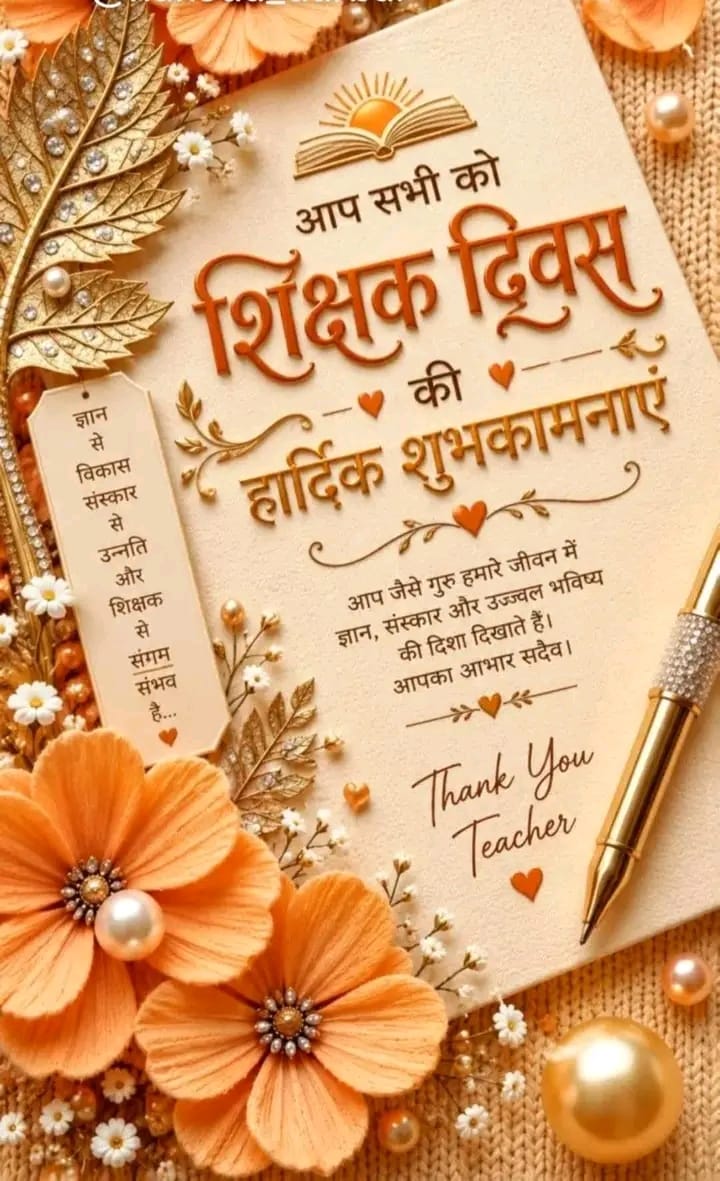 आप सभी को
शिक्षक दिवस
की
हार्दिक शुभकामनाएं
ज्ञान
से
विकास
संस्कार
से
उन्नति
और
शिक्षक
से
संगम
संभव
है...
आप जैसे गुरु हमारे जीवन में
ज्ञान, संस्कार और उज्ज्वल भविष्य
की दिशा दिखाते हैं।
आपका आभार सदैव।
Thank You
Teacher